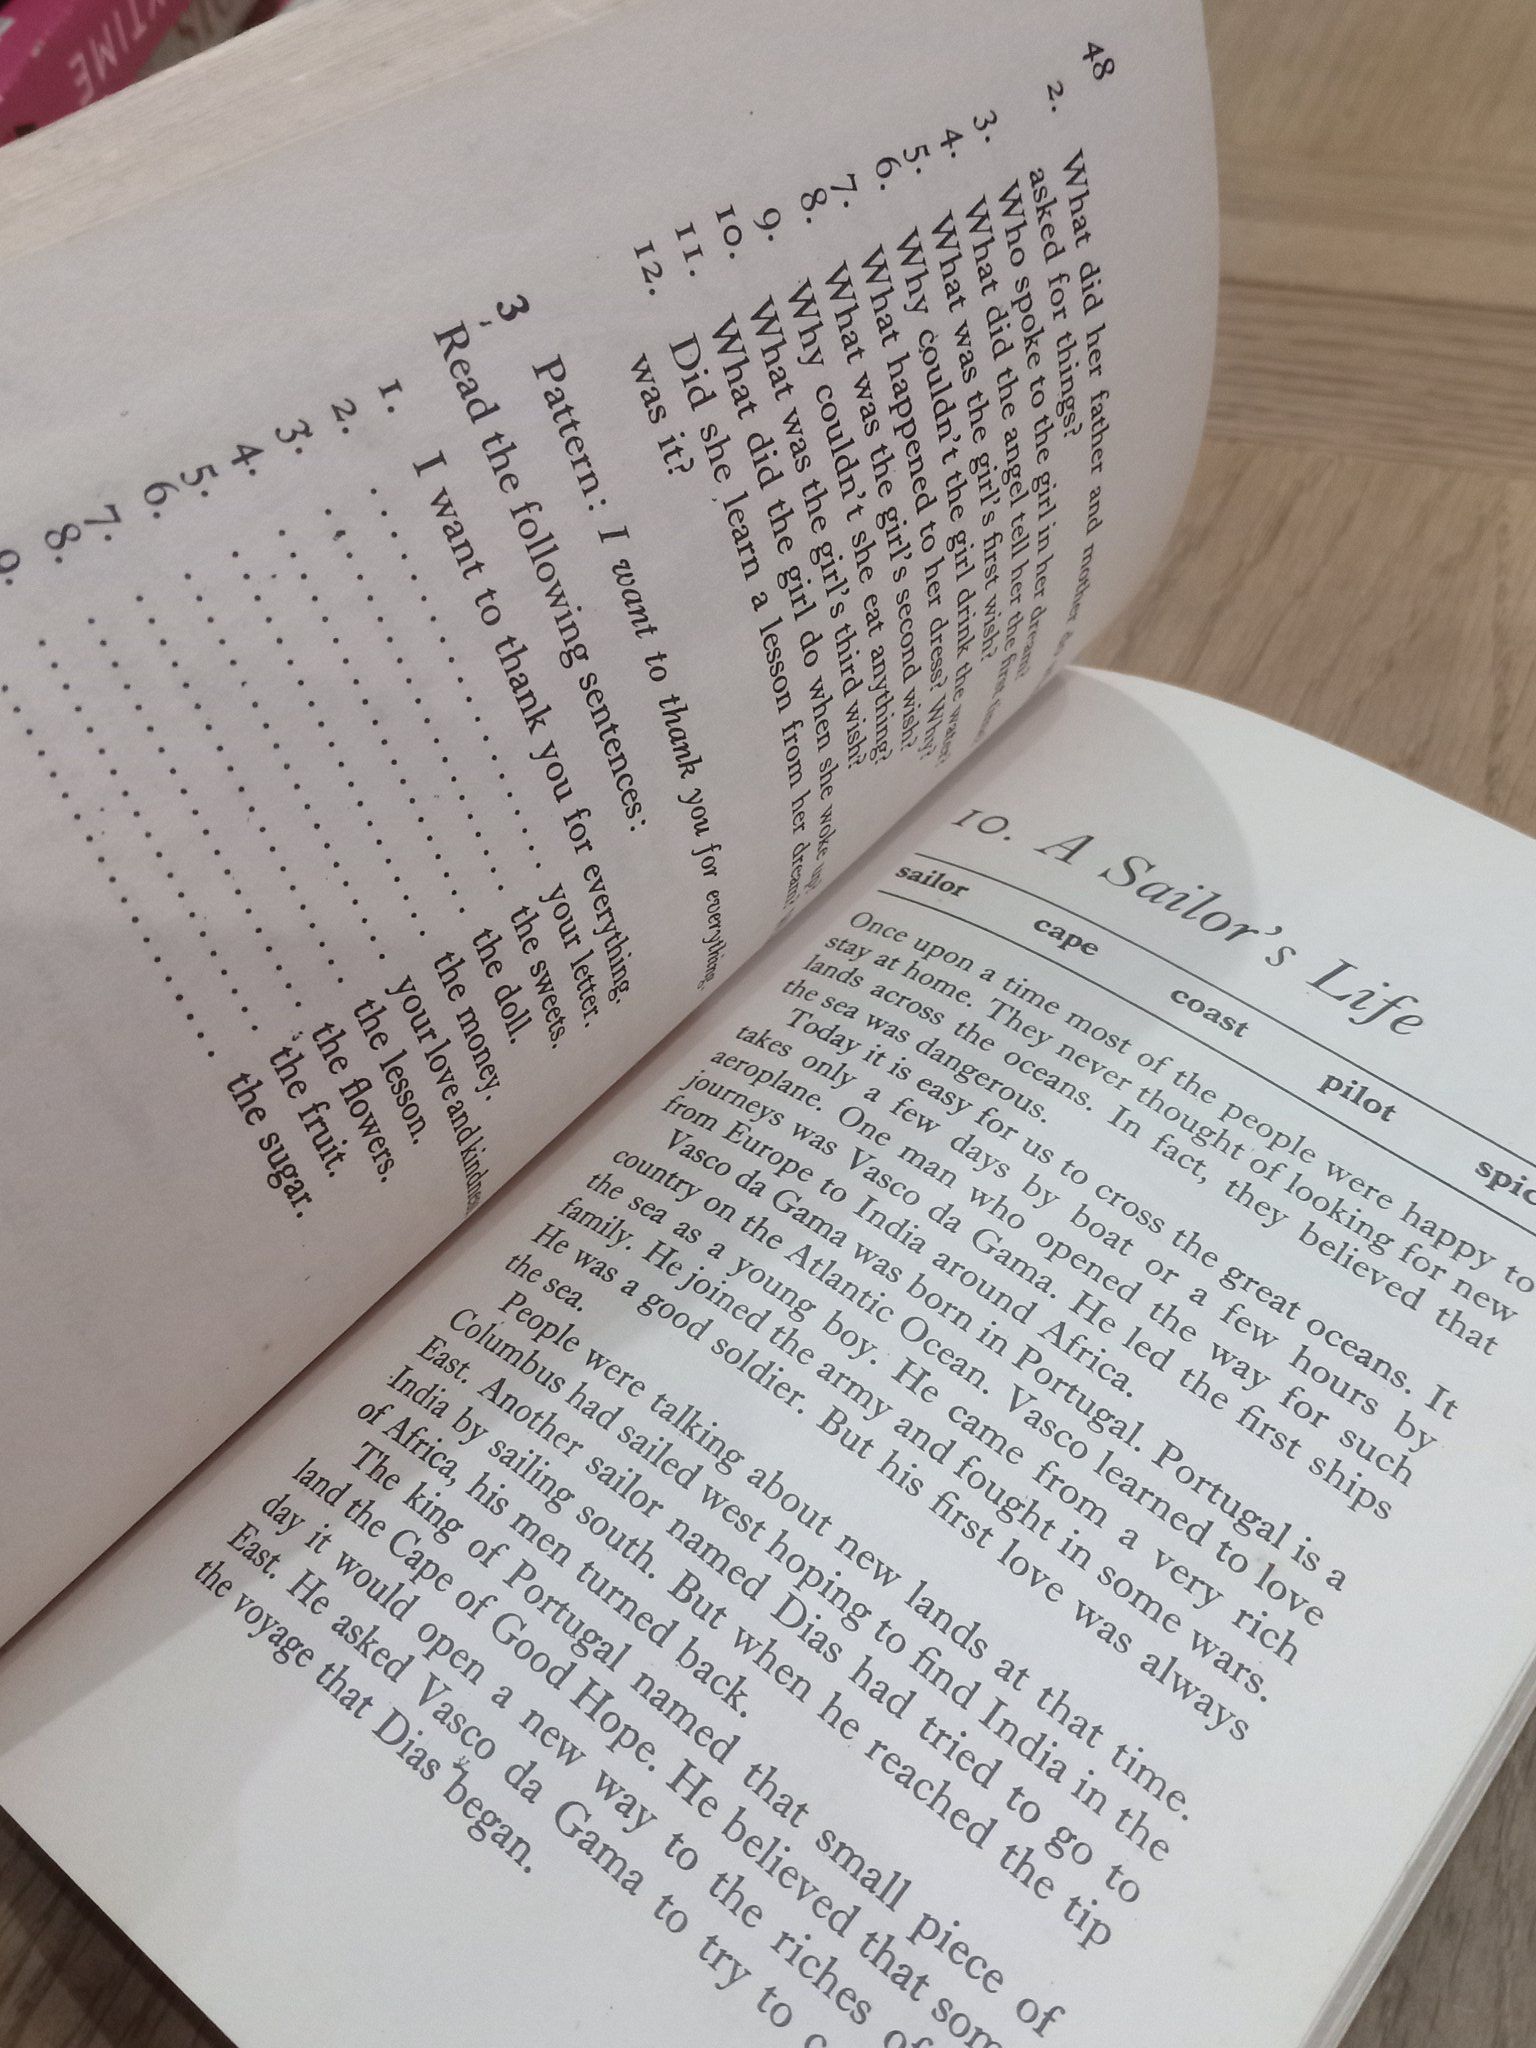 YTIME
48
2. What did her father and mother do
asked for things?
3. Who spoke to the girl in her dream?
4. What did the angel tell her the first time?
5. What was the girl's first wish?
6. Why couldn't the girl drink the water?
7. What happened to her dress? Why?
8. What was the girl's second wish?
9. Why couldn't she eat anything?
10. What was the girl's third wish?
11. What did the girl do when she woke up?
12. Did she learn a lesson from her dream?
was it?
3 Pattern: I want to thank you for everything.
Read the following sentences:
1. I want to thank you for everything.
2. . . . . . . . . . . . . . . . . your letter.
3. . . . . . . . . . . . . . . . . the sweets.
4. . . . . . . . . . . . . . . . . the doll.
5. . . . . . . . . . . . . . . . . the money.
6. . . . . . . . . . . . . . . . . your love and kindness
7. . . . . . . . . . . . . . . . . the lesson.
8. . . . . . . . . . . . . . . . . the flowers.
9. . . . . . . . . . . . . . . . . the fruit.
. . . . . . . . . . . . . . . . the sugar.
10. A Sailor's Life
sailor cape coast pilot spic
Once upon a time most of the people were happy to
stay at home. They never thought of looking for new
lands across the oceans. In fact, they believed that
the sea was dangerous.
Today it is easy for us to cross the great oceans. It
takes only a few days by boat or a few hours by
aeroplane. One man who opened the way for such
journeys was Vasco da Gama. He led the first ships
from Europe to India around Africa.
Vasco da Gama was born in Portugal. Portugal is a
country on the Atlantic Ocean. Vasco learned to love
the sea as a young boy. He came from a very rich
family. He joined the army and fought in some wars.
He was a good soldier. But his first love was always
the sea.
People were talking about new lands at that time.
Columbus had sailed west hoping to find India in the
East. Another sailor named Dias had tried to go to
India by sailing south. But when he reached the tip
of Africa, his men turned back.
The king of Portugal named that small piece of
land the Cape of Good Hope. He believed that som
day it would open a new way to the riches of
East. He asked Vasco da Gama to try to c
the voyage that Dias began.